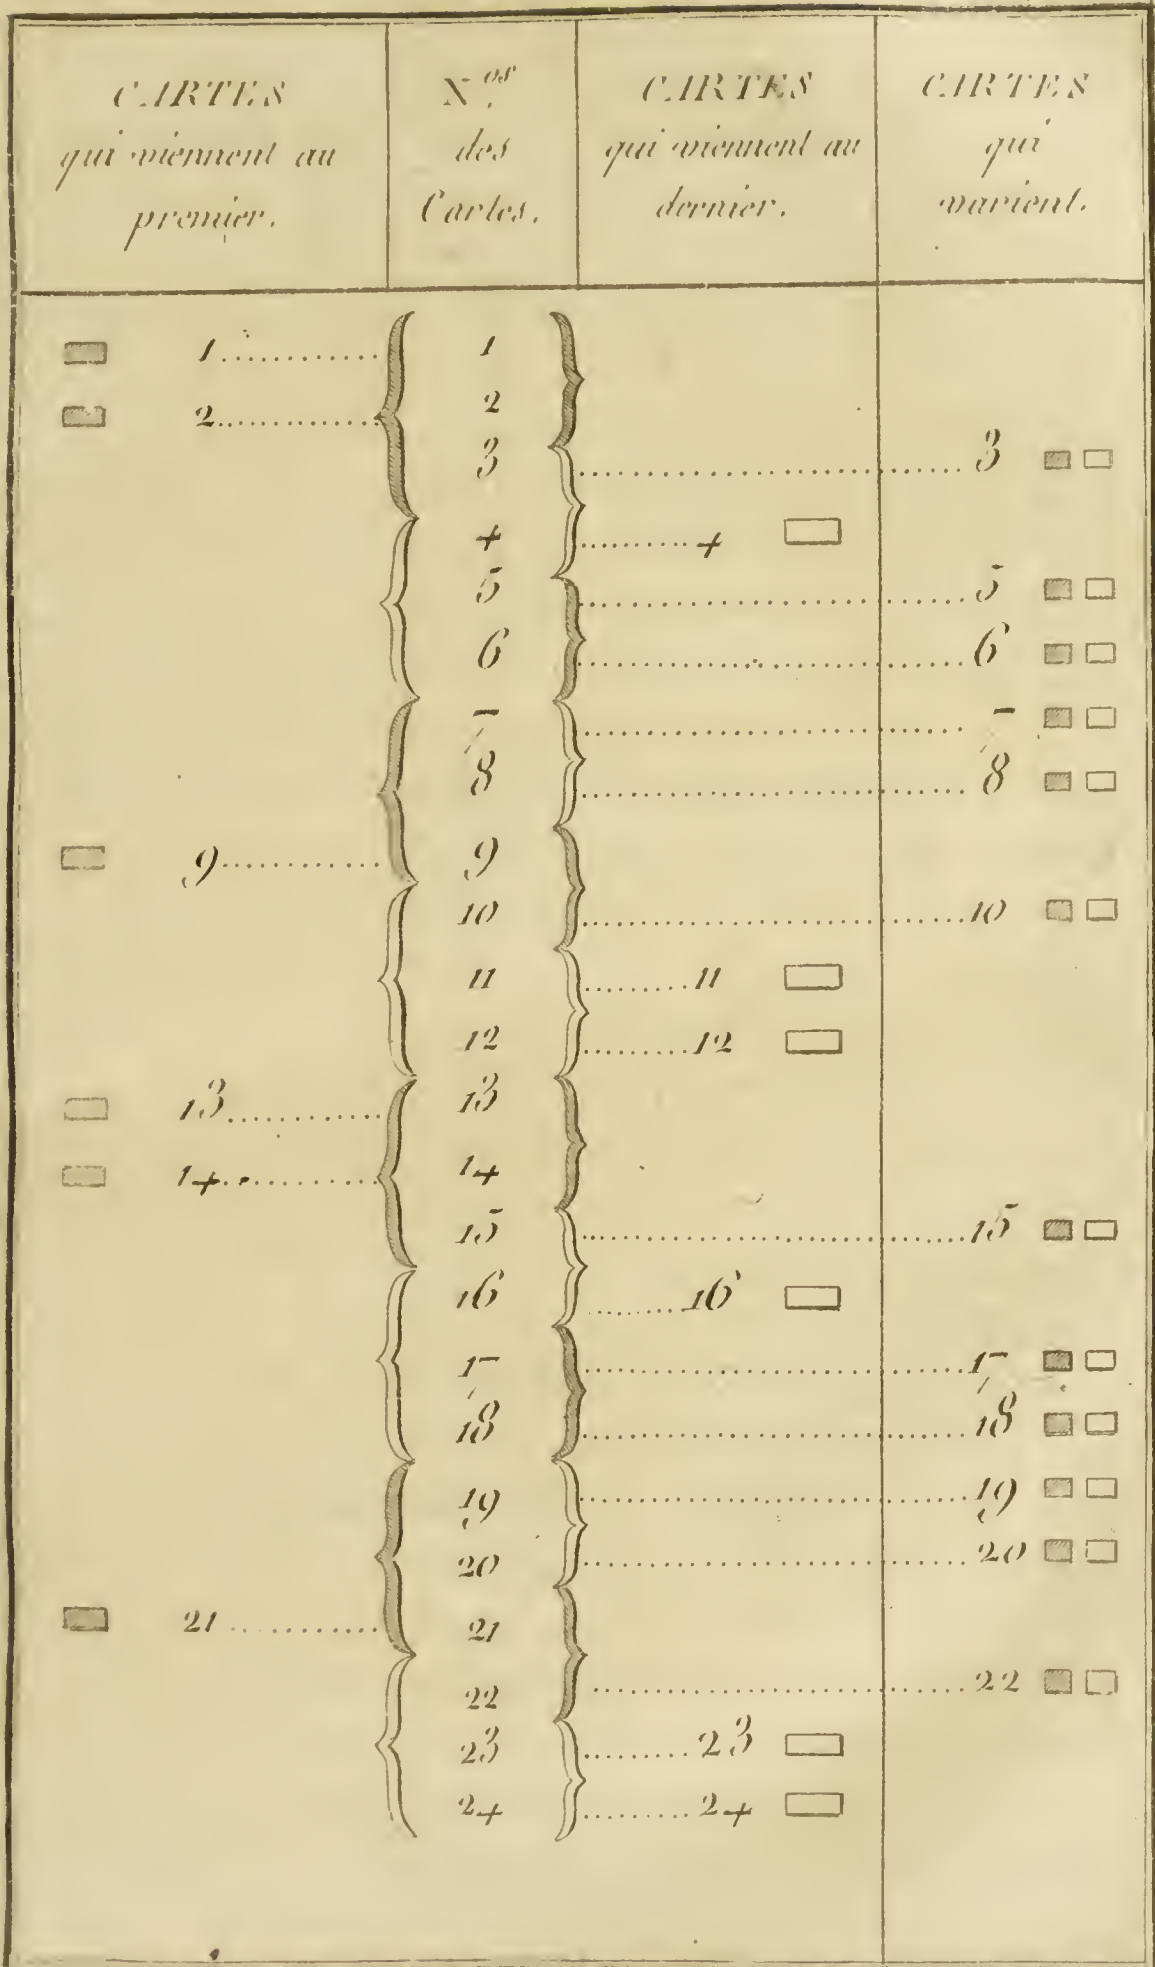 CARTES
qui viennent au
premier.
N.os
des
Cartes.
CARTES
qui viennent au
dernier.
CARTES
qui
varient.
1 1
2 2
3 3
4 4
5 5
6 6
7 7
8 8
9 9
10 10
11 11
12 12
13 13
14 14
15 15
16 16
17 17
18 18
19 19
20 20
21 21
22 22
23 23
24 24